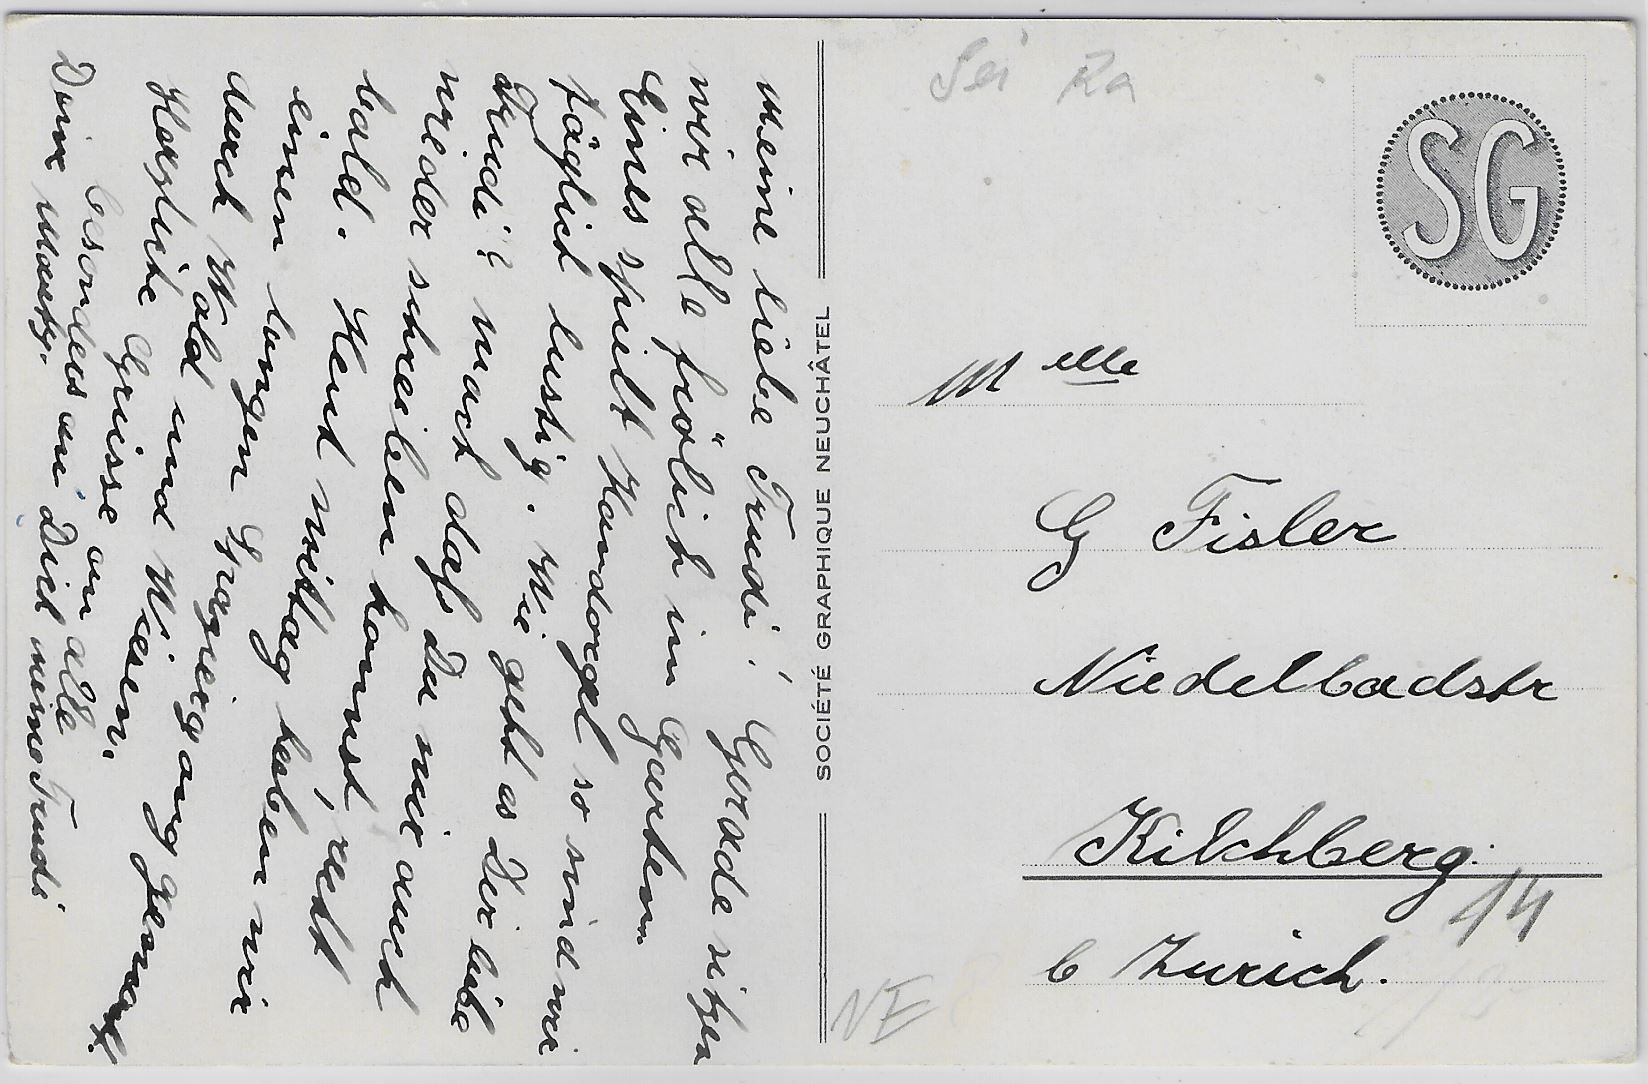 Meine liebe Trudi! Gerade sitzen
wir alle frölich im Garten
Eines spielt Handorgel so sind wir
täglich lustig. Wie geht es Dir liebe
Trudi? mach dass Du mir auch
wieder schreiben kannst, recht
bald. Heut mittag haben wir
einen langen Spaziergang gemacht.
durch Wald und Wiesen.
Herzliche Grüsse an alle
besonders an Dich meine Trudi
Deine
SOCIÉTÉ GRAPHIQUE NEUCHÂTEL
Sei Ra
SG
Melle
G Fisler
Niedelbadstr
Kilchberg.
14
b Zürich.
NE